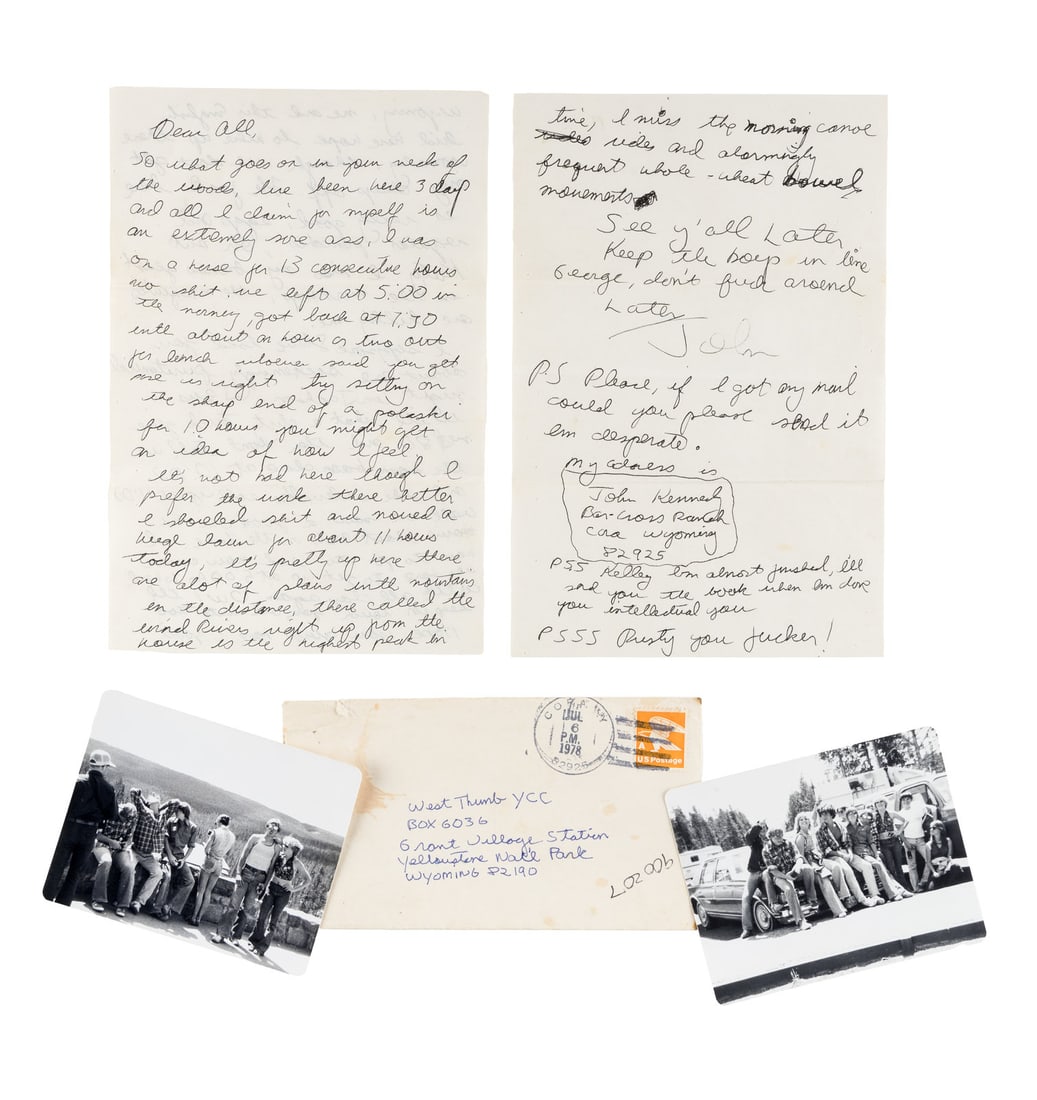 Dear All,
So what goes on in your neck of
the woods, Ive been here 3 days
and all I claim for myself is
an extremely sore ass, I was
on a horse for 13 consecutive hours
no shit. we left at 5:00 in
the morning, got back at 7:30
with about an hour or two out
for lunch whoever said you get
sore is right try sitting on
the sharp end of a polaski
for 10 hours you might get
an idea of how I feel.
It's not bad here though I
prefer the work there better
I shoveled shit and mowed a
huge lawn for about 11 hours
today, it's pretty up here there
are alot of plains with mountains
in the distance, there called the
Wind Rivers right up from the
house is the highest peak in
time, I miss the morning canoe
rides and alarmingly
frequent whole-wheat bowel
movements
See y'all Later
Keep the boys in line
George, don't fuck around
Later
John
P.S Please, if I got any mail
could you please send it
Im desperate.
my adress is
John Kennedy
Bar-Cross Ranch
Cora Wyoming
82925
PSS Kelley Im almost finished, I'll
send you the book when Im done
you intellectual you
PSSS Rusty you fucker!
CORA, WY
JUL
6
P.M.
1978
82925
A
US Postage
West Thumb YCC
BOX 6036
Grant Village Station
Yellowstone Nat'l Park
Wyoming 82190